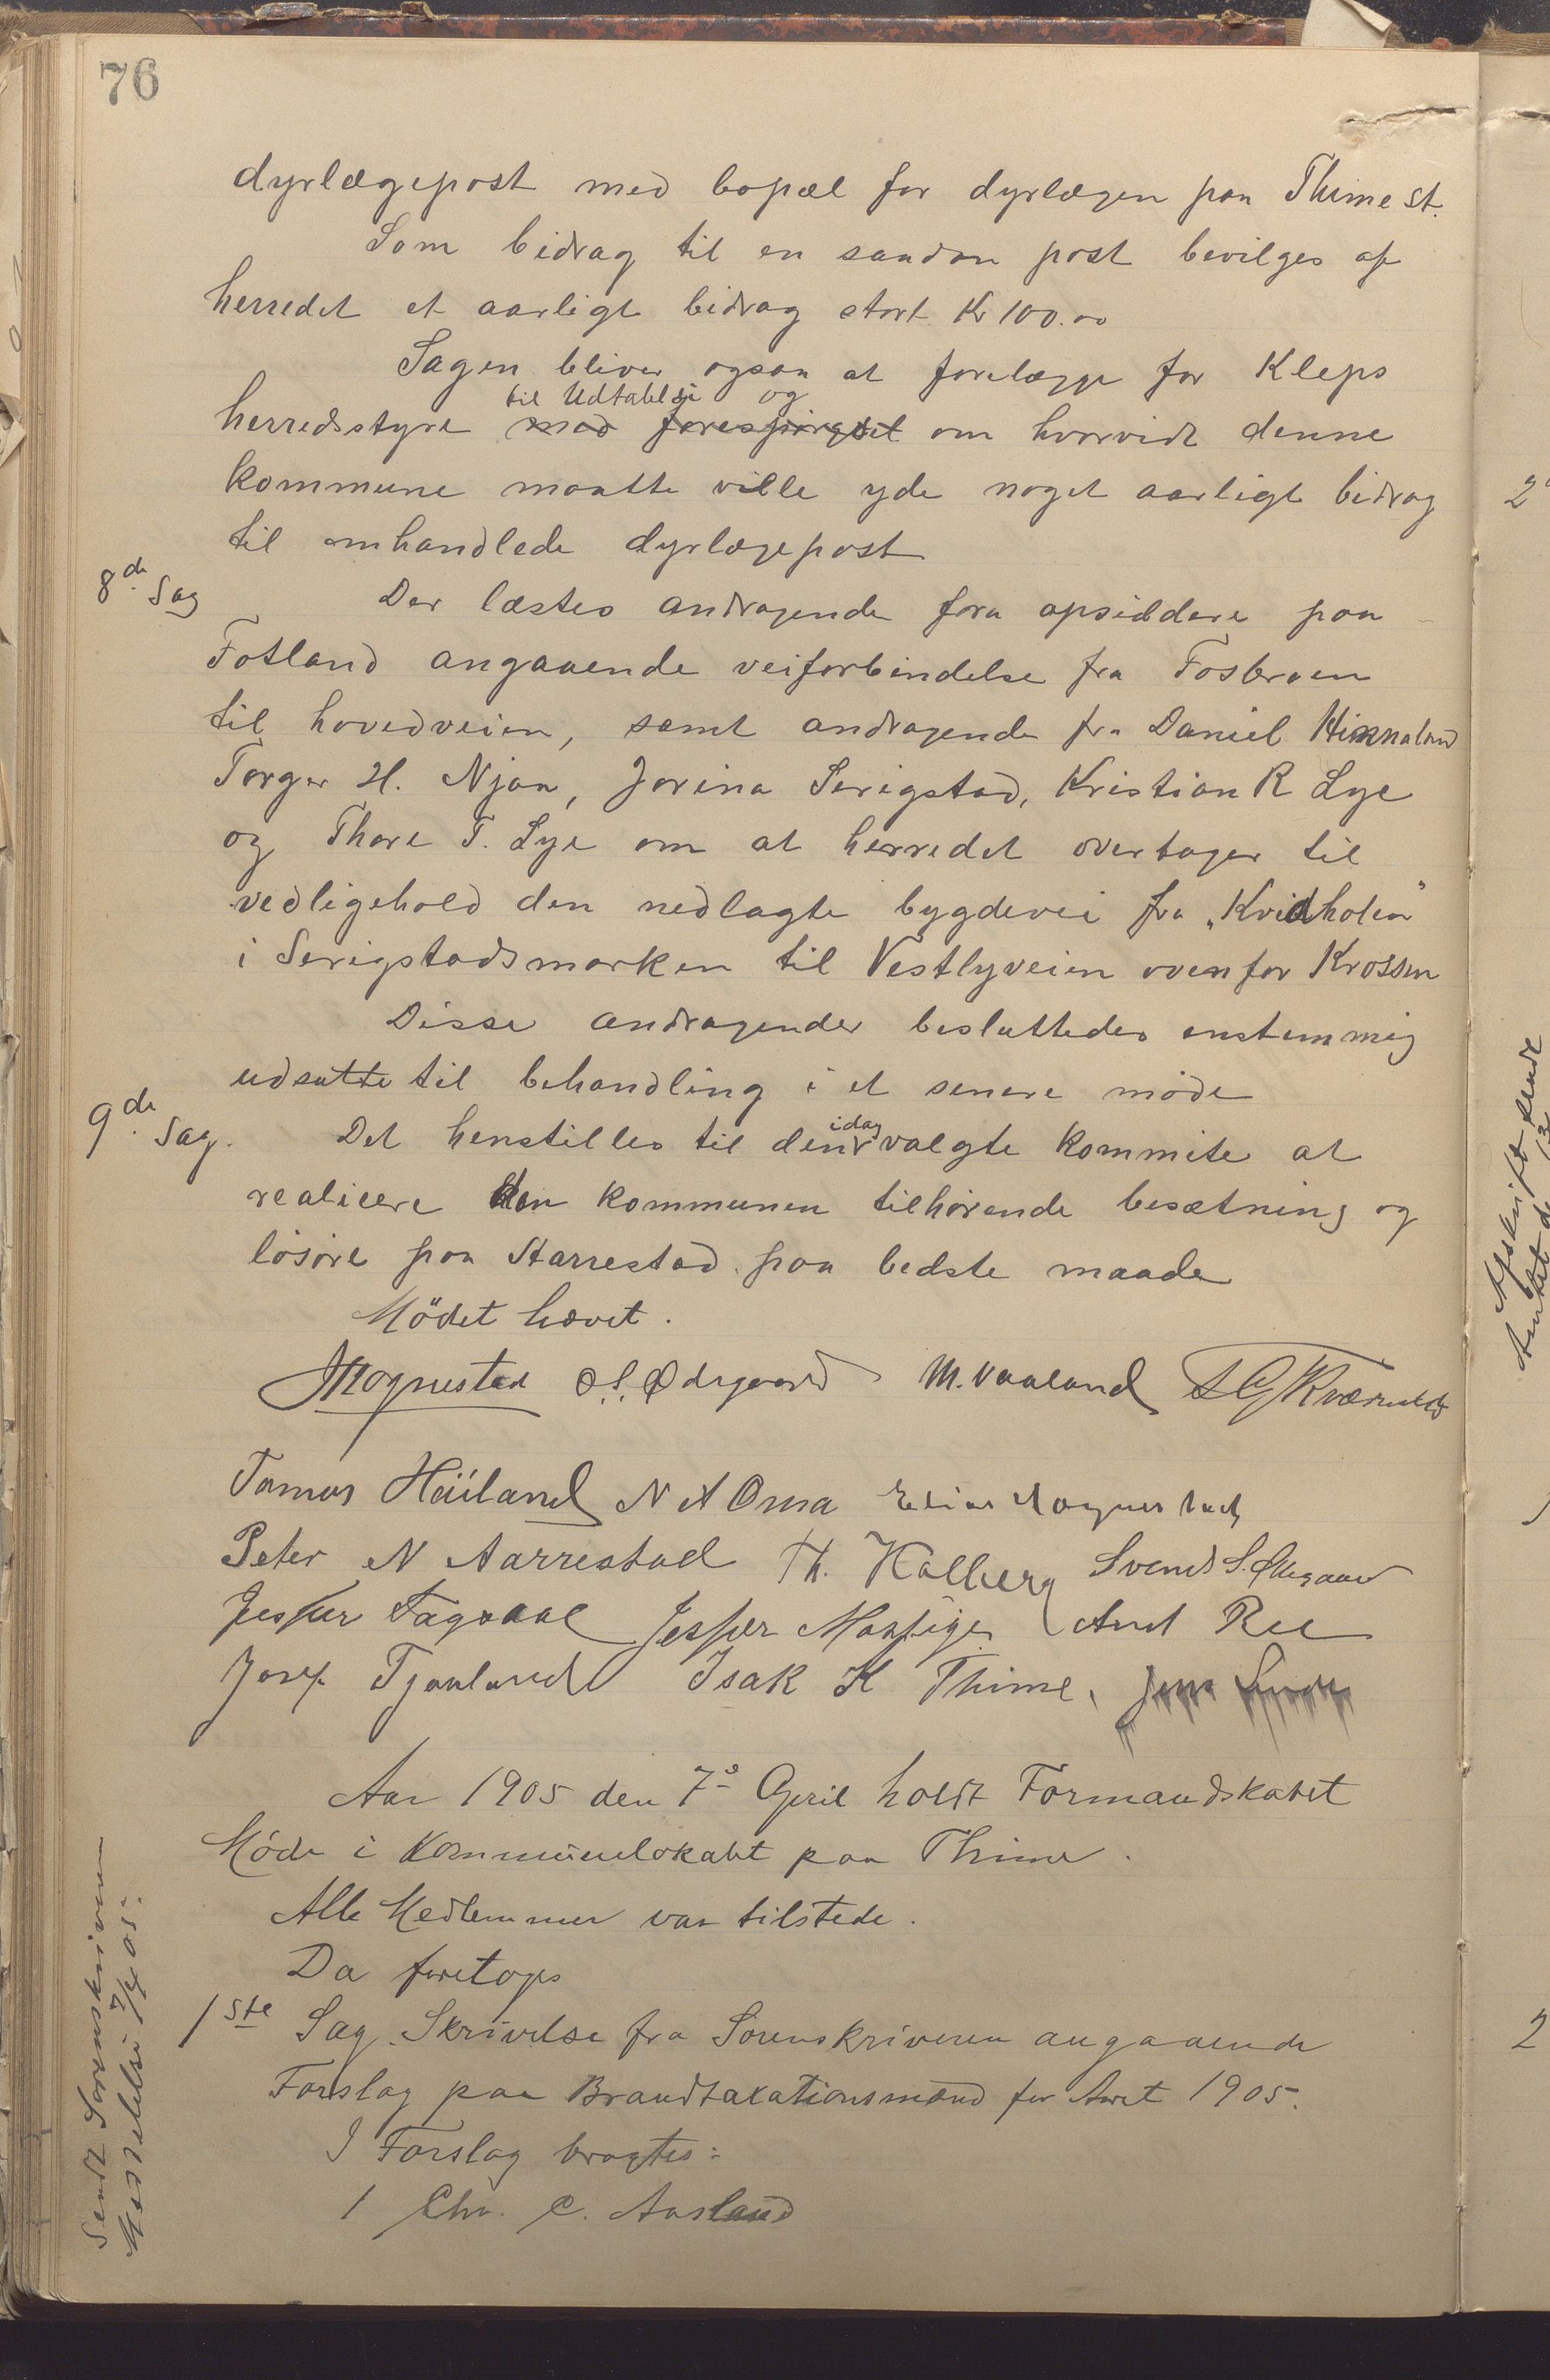 76
dyrlægepost med bopæl for dyrlægen paa Thime st.
Som bidrag til en saadan post bevilges af
herredet et aarligt bidrag stort Kr 100.00
Sagen bliver ogsaa at forelægge for Kleps
til Udtalelse og
herredsstyre med forespørgsel om hvorvidt denne
kommune maatte ville yde noget aarligt bidrag
til omhandlede dyrlægepost
8de Sag
Der læstes andragende fra opsiddere paa
Fotland angaaende veiforbindelse fra Fosbroen
til hovedveien, samt andragende fra Daniel Hinnaland
Torger H. Njaa, Jorina Serigstad, Kristian R Lye
og Thore T. Lye om at herredet overtager til
vedligehold den nedlagte bygdevei fra „Kvidholen"
i Serigstadsmarken til Vestlyveien ovenfor Krossen
Disse andragender besluttedes enstemmig
udsatte til behandling i et senere møde
9de Sag.
idag
Det henstilles til den valgte kommite at
realicere den kommunen tilhørende besætning og
løsøre paa Harrestad paa bedste maade
Mödet hævet.
Mognestad O. S. Ødegaard M. Vaaland
Tomas Häiland N A Oma Elias Mognestad
Peter N Aarrestad Th. Kalberg Svend S. Ødegaard
Jesper Tagholdt Jesper Mossige Arnt Ree
Josef Tjaaland Isak K Thime,
Aar 1905 den 7de April holdt Formandskabet
Møde i Kommunelokalet paa Thime.
Alle Medlemmer var tilstede.
Da foretoges
1ste Sag. Skrivelse fra Sorenskriveren angaaende
Forslag paa Brandtaxationsmænd for Aaret 1905.
I Forslag bragtes:
1 Chr. C. Aasland
Sendt Sorenskriveren
Meddelelse 7/4 05.
Afskrift sendt
Amtet d
2
2